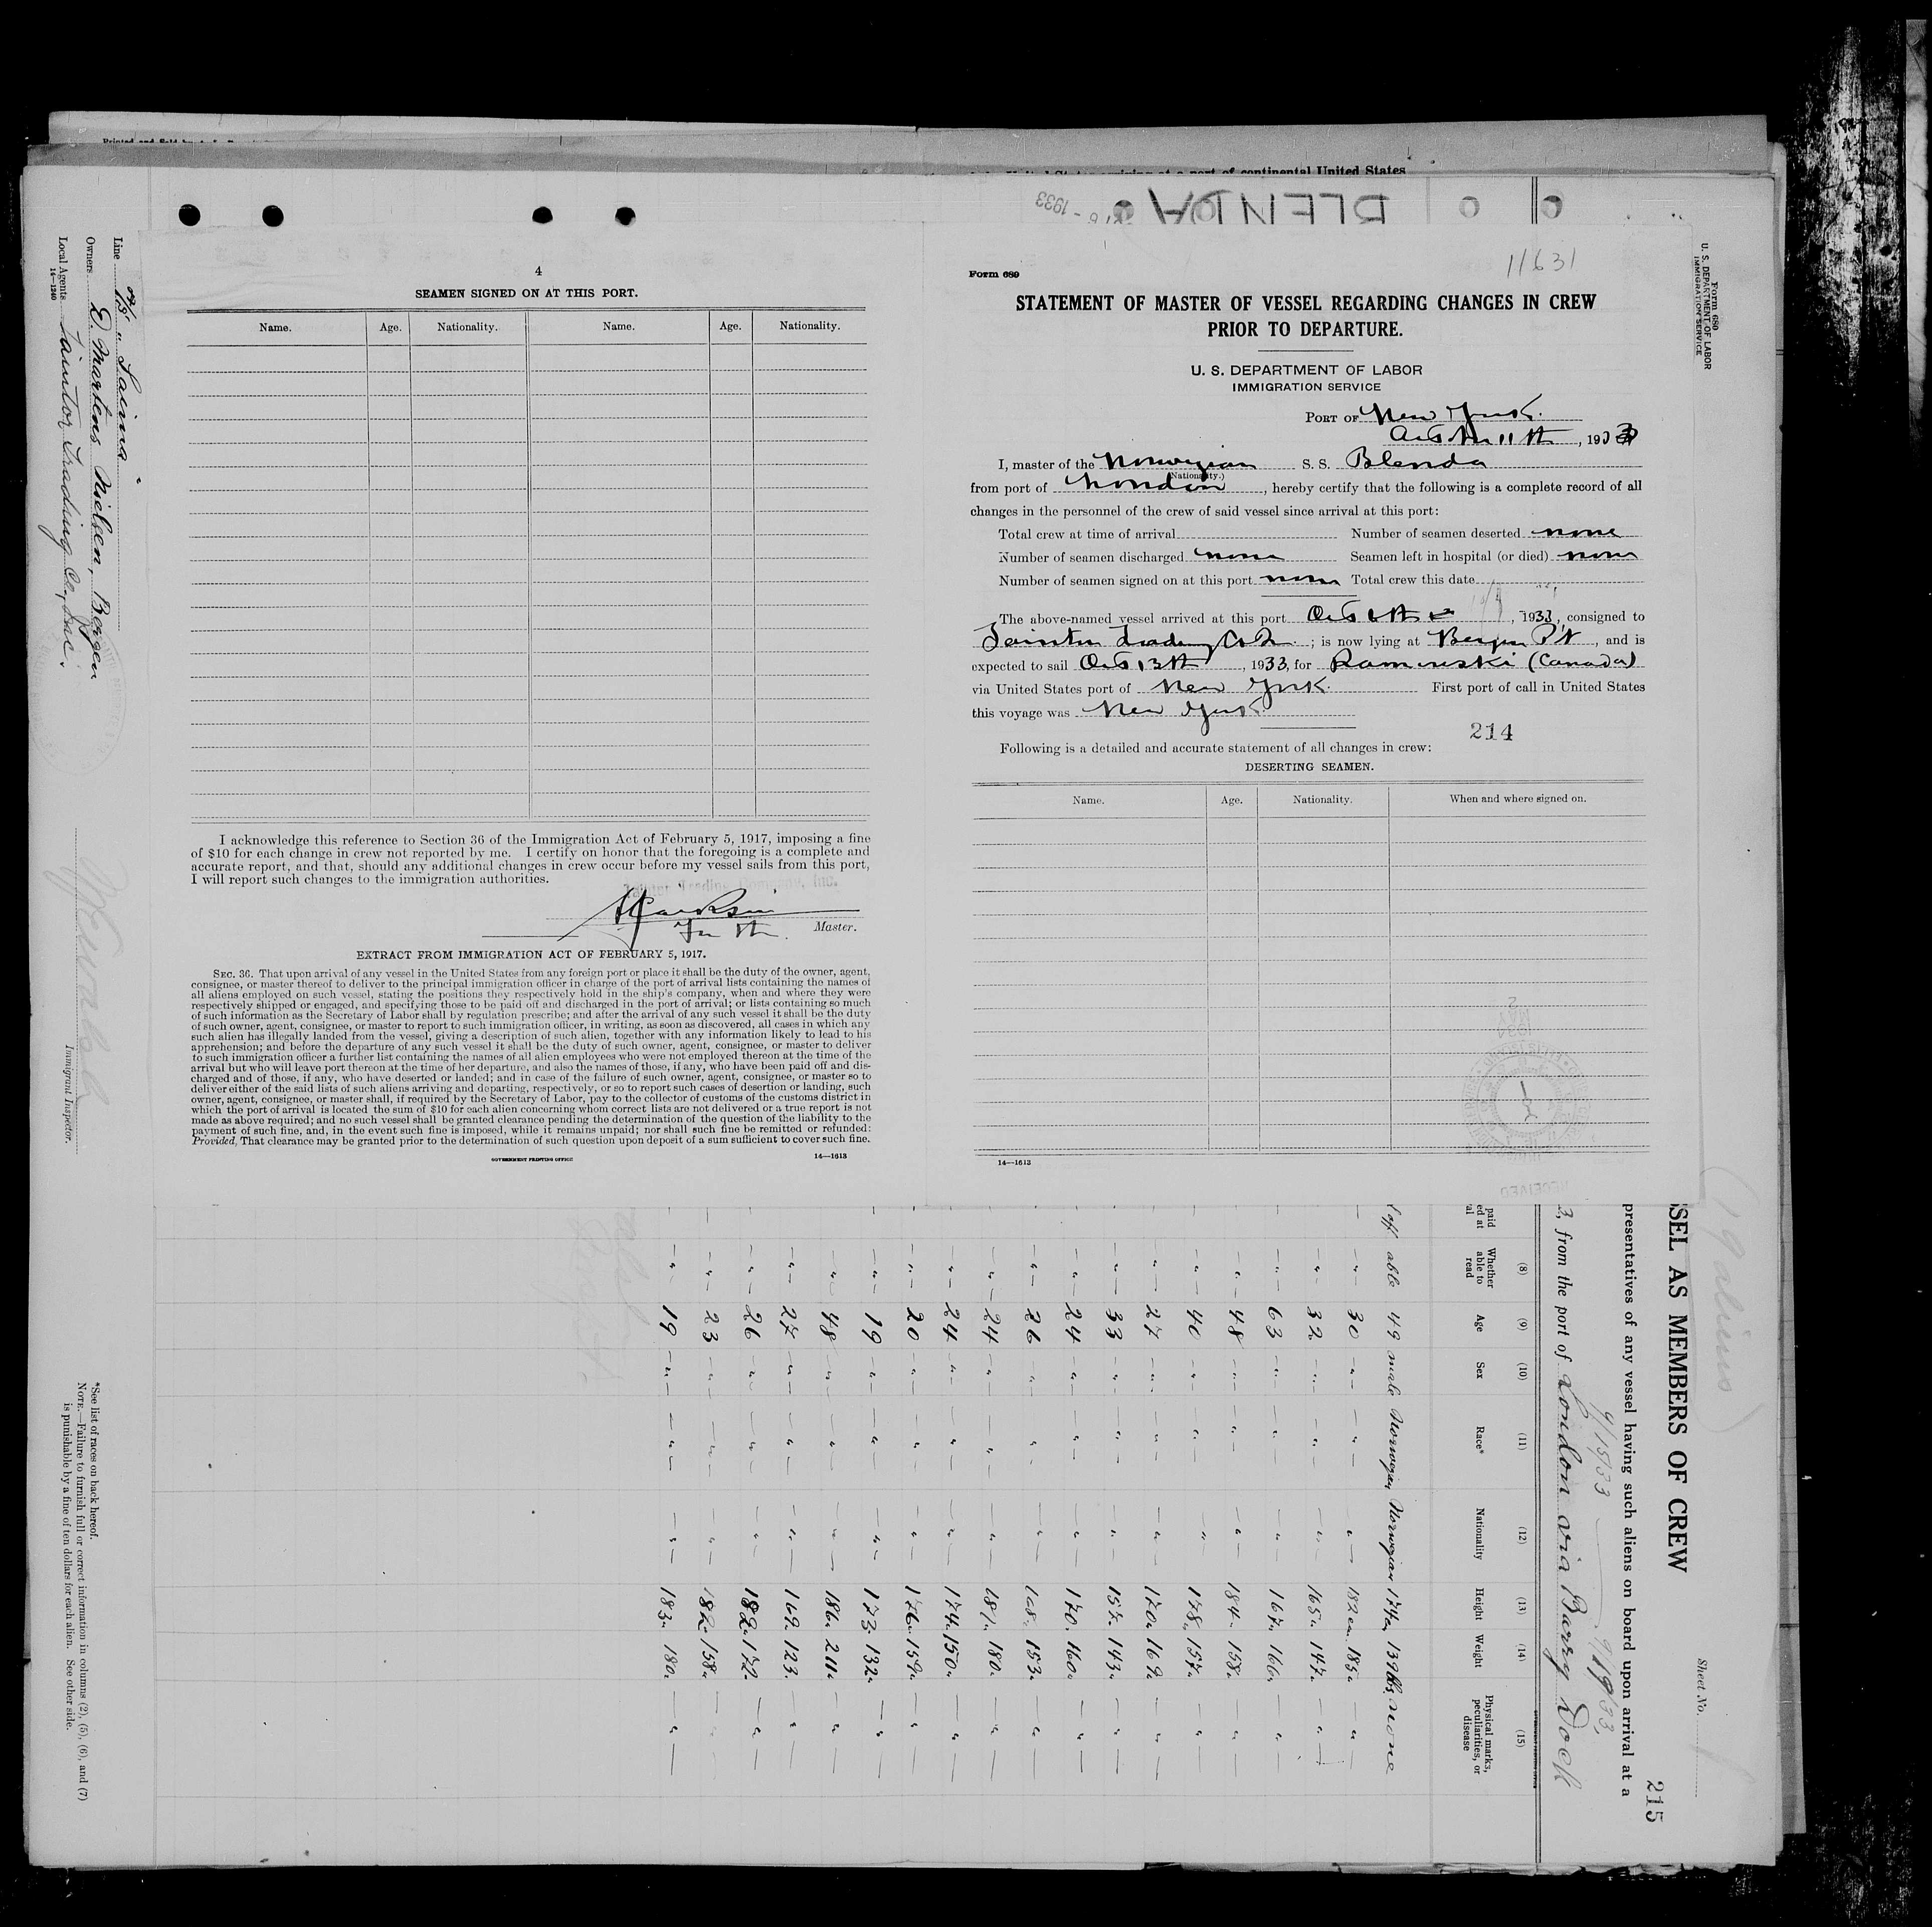 Printed and Sold by
United States arriving at a port of continental United States
BLENDA
1933
4
SEAMEN SIGNED ON AT THIS PORT.
Name. Age. Nationality. Name. Age. Nationality.
I acknowledge this reference to Section 36 of the Immigration Act of February 5, 1917, imposing a fine
of $10 for each change in crew not reported by me. I certify on honor that the foregoing is a complete and
accurate report, and that, should any additional changes in crew occur before my vessel sails from this port,
I will report such changes to the immigration authorities.
Tainter Trading Company, Inc.
Master.
EXTRACT FROM IMMIGRATION ACT OF FEBRUARY 5, 1917.
SEC. 36. That upon arrival of any vessel in the United States from any foreign port or place it shall be the duty of the owner, agent,
consignee, or master thereof to deliver to the principal immigration officer in charge of the port of arrival lists containing the names of
all aliens employed on such vessel, stating the positions they respectively hold in the ship's company, when and where they were
respectively shipped or engaged, and specifying those to be paid off and discharged in the port of arrival; or lists containing so much
of such information as the Secretary of Labor shall by regulation prescribe; and after the arrival of any such vessel it shall be the duty
of such owner, agent, consignee, or master to report to such immigration officer, in writing, as soon as discovered, all cases in which any
such alien has illegally landed from the vessel, giving a description of such alien, together with any information likely to lead to his
apprehension; and before the departure of any such vessel it shall be the duty of such owner, agent, consignee, or master to deliver
to such immigration officer a further list containing the names of all alien employees who were not employed thereon at the time of the
arrival but who will leave port thereon at the time of her departure, and also the names of those, if any, who have been paid off and dis-
charged and of those, if any, who have deserted or landed; and in case of the failure of such owner, agent, consignee, or master so to
deliver either of the said lists of such aliens arriving and departing, respectively, or so to report such cases of desertion or landing, such
owner, agent, consignee, or master shall, if required by the Secretary of Labor, pay to the collector of customs of the customs district in
which the port of arrival is located the sum of $10 for each alien concerning whom correct lists are not delivered or a true report is not
made as above required; and no such vessel shall be granted clearance pending the determination of the question of the liability to the
payment of such fine, and, in the event such fine is imposed, while it remains unpaid; nor shall such fine be remitted or refunded:
Provided, That clearance may be granted prior to the determination of such question upon deposit of a sum sufficient to cover such fine.
GOVERNMENT PRINTING OFFICE 14—1613
Form 689
11631
STATEMENT OF MASTER OF VESSEL REGARDING CHANGES IN CREW
PRIOR TO DEPARTURE.
U. S. DEPARTMENT OF LABOR
IMMIGRATION SERVICE
PORT OF New York.
October 11th, 1933
I, master of the Norwegian S. S. Blenda
(Nationality.)
from port of London, hereby certify that the following is a complete record of all
changes in the personnel of the crew of said vessel since arrival at this port:
Total crew at time of arrival Number of seamen deserted none
Number of seamen discharged none Seamen left in hospital (or died) none
Number of seamen signed on at this port none Total crew this date
The above-named vessel arrived at this port Oct 6th, 1933, consigned to
Tainter Trading Co In.; is now lying at Bergen Pt, and is
expected to sail Oct 13th, 1933, for Ramouski (Canada)
via United States port of New York. First port of call in United States
this voyage was New York
214
Following is a detailed and accurate statement of all changes in crew:
DESERTING SEAMEN.
Name. Age. Nationality. When and where signed on.
14—1613
RECEIVED
Form 680
U. S. DEPARTMENT OF LABOR
IMMIGRATION SERVICE
Line
Owners D. Martens Nielsen, Bergen
Local Agents Taintor Trading Co., Inc.
14—1240
Immigrant Inspector.
*See list of races on back hereof.
NOTE.—Failure to furnish full or correct information in columns (2), (5), (6), and (7)
is punishable by a fine of ten dollars for each alien. See other side.
(19 aliens)
Sheet No.
SSEL AS MEMBERS OF CREW
215
presentatives of any vessel having such aliens on board upon arrival at a
3, from the port of London via Barry Dock
(8) (9) (10) (11) (12) (13) (14) (15)
paid
ed at
al
Whether able to read Age Sex Race* Nationality Height Weight Physical marks, peculiarities, or disease
off able 49 male Norwegian Norwegian 174 139 lbs none
— " — 30 — " — — " — — " — 182 cm 185 — " —
— " — 32 — " — — " — — " — 165 147 — " —
— " — 63 — " — — " — — " — 167 166 — " —
— " — 48 — " — — " — — " — 184 158 — " —
— " — 40 — " — — " — — " — 178 157 — " —
— " — 27 — " — — " — — " — 170 169 — " —
— " — 33 — " — — " — — " — 157 143 — " —
— " — 24 — " — — " — — " — 170 160 — " —
— " — 26 — " — — " — — " — 168 153 — " —
— " — 24 — " — — " — — " — 181 180 — " —
— " — 24 — " — — " — — " — 174 150 — " —
— " — 20 — " — — " — — " — 176 159 — " —
— " — 19 — " — — " — — " — 173 132 — " —
— " — 48 — " — — " — — " — 186 211 — " —
— " — 27 — " — — " — — " — 169 123 — " —
— " — 26 — " — — " — — " — 182 172 — " —
— " — 23 — " — — " — — " — 182 158 — " —
— " — 19 — " — — " — — " — 183 180 — " —